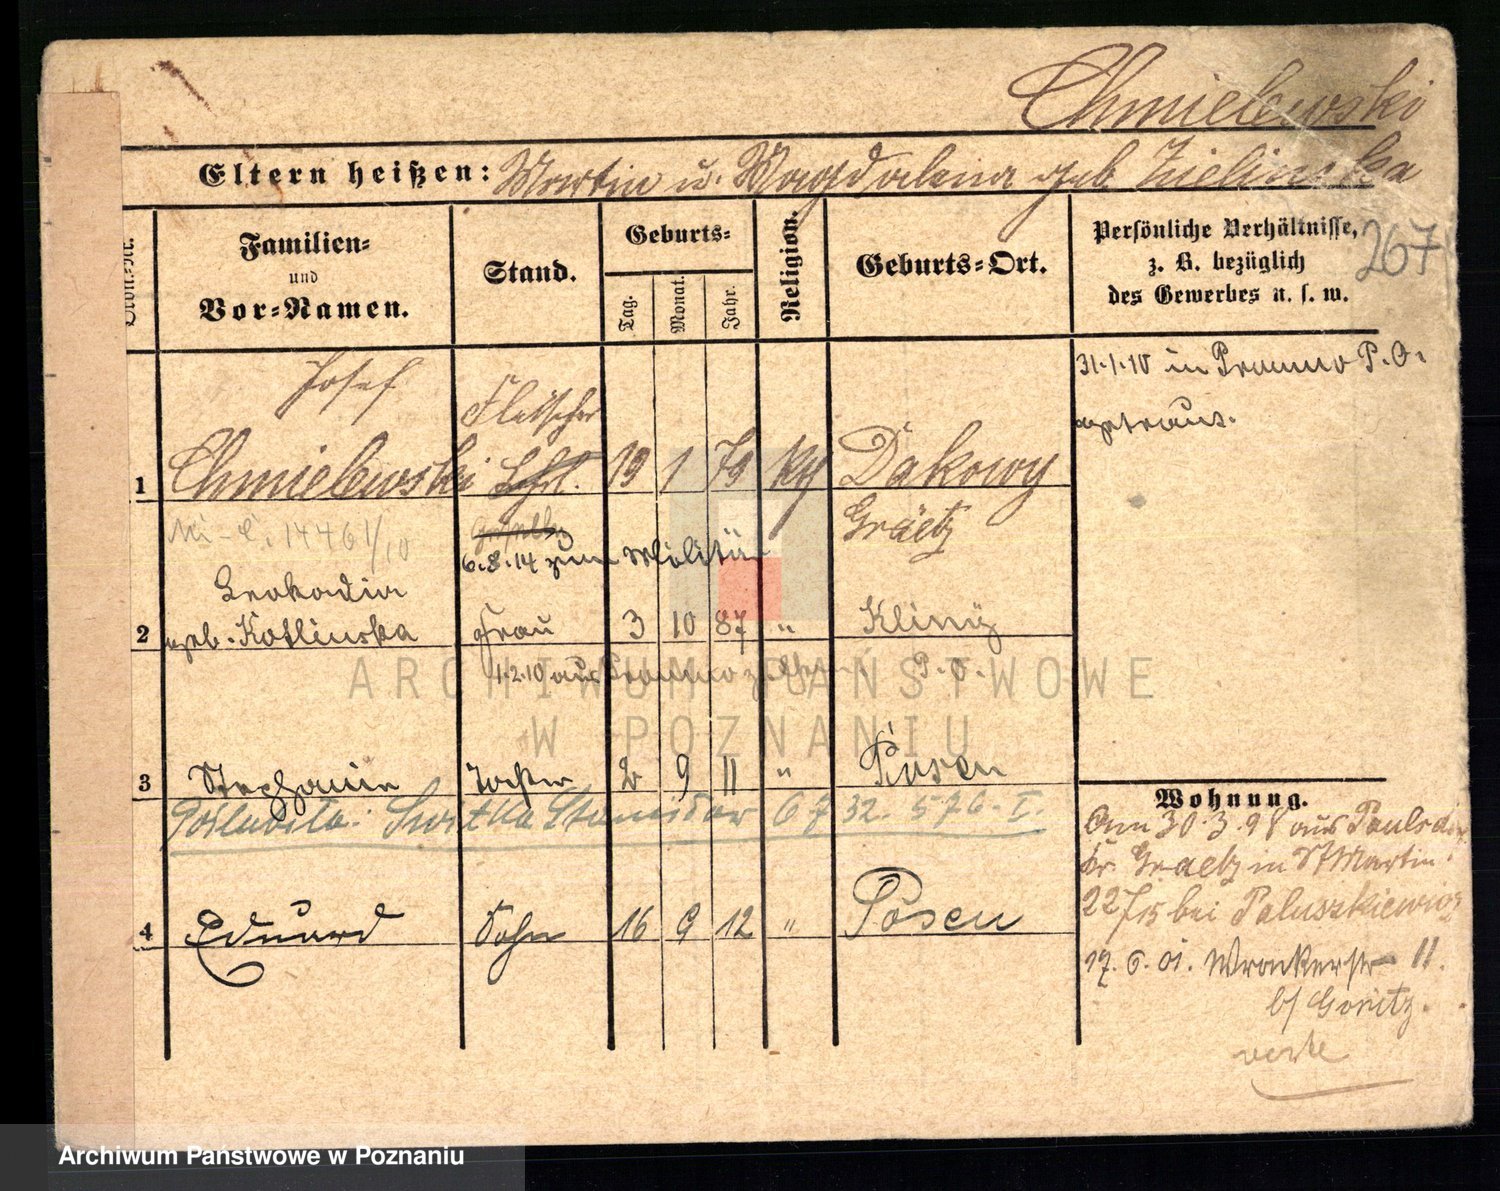 Chmielewski
Eltern heißen: Martin u. Magdalena geb Zielinska
267
Familien-
und
Vor-Namen.
Stand.
Geburts-
Tag.
Monat.
Jahr.
Religion.
Geburts-Ort.
Persönliche Verhältnisse,
z. B. bezüglich
des Gewerbes u. s. w.
31.1.10 in P. O.
getraut.
Josef
Fleischer
1 Chmielewski 19 1 79 Dakowy
Graetz
14461/10
6.8.14 zum Militär
Leokadia
2 geb. Kotlinska Frau 3 10 87 " Kliny
1.2.10 aus P. O.
3 Stephanie Tochter 2 9 11 " Posen
Poślubiła: Stanisław 6 7 32. 576. I.
4 Eduard Sohn 16 9 12 " Posen
Wohnung.
Am 30.3.98 aus
Kr Graetz in St Martin
22/15 bei Paluszkiewicz
17.6.01. Wronkerstr 11.
b/ Goritz.
verte
ARCHIWUM PAŃSTWOWE
W POZNANIU
Archiwum Państwowe w Poznaniu